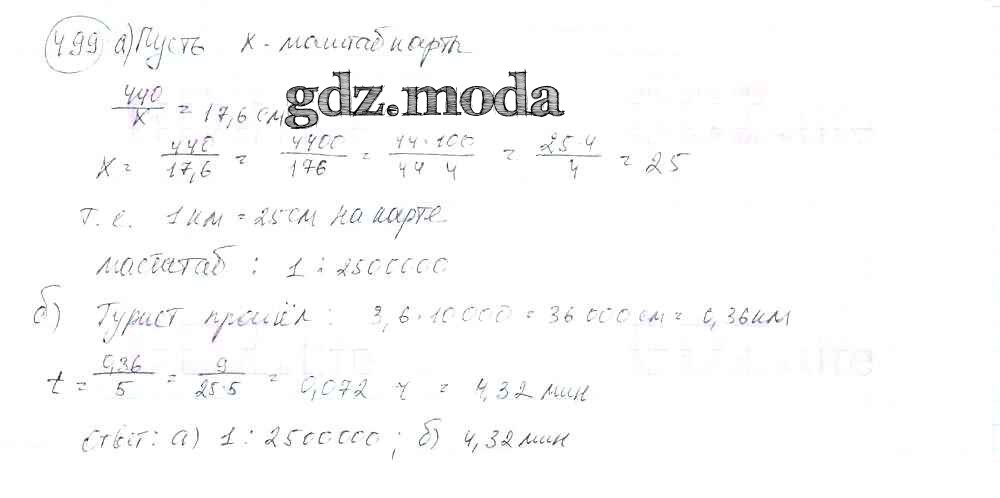 499 а) Пусть x - масштаб карты
440/x = 17,6 см
gdz.moda
x = 440/17,6 = 4400/176 = 44·100/44 4 = 25·4/4 = 25
т.е. 1 км = 25 см на карте
масштаб : 1 : 2500000
б) Турист прошёл : 3,6·10000 = 36000 см = 0,36 км
t = 0,36/5 = 9/25·5 = 0,072 ч = 4,32 мин
ответ: а) 1 : 2500000 ; б) 4,32 мин